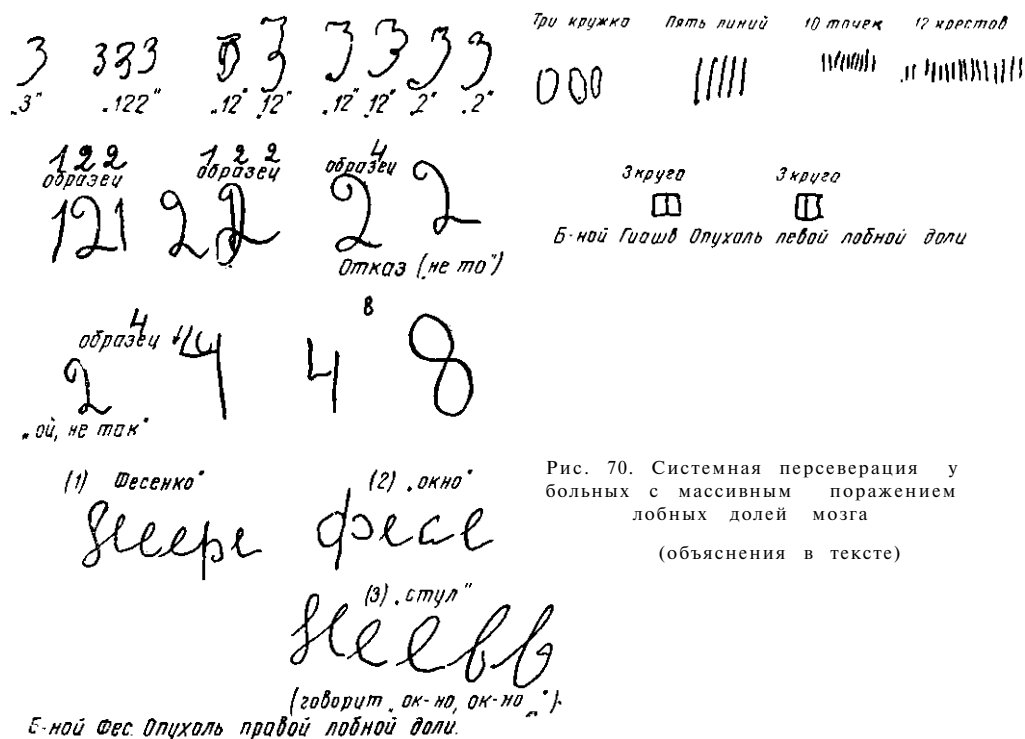 3 333 3 3 3 3 3
„3" „122" „12" „12" „12" „12" „2" „2"
122 122 4
образец образец образец
121 2 2 2 2
Отказ („не то")
4 в
образец 4 4 8
2
„ой, не так"
(1) Фесенко" (2) „окно"
фесе
(3) „стул"
(говорит „ок-но, ок-но„")
Б-ной Фес. Опухоль правой лобной доли.
Три кружка Пять линий 10 точек 12 крестов
3 круга 3 круга
Б-ной Гиашв Опухоль левой лобной доли
Рис. 70. Системная персеверация у
больных с массивным поражением
лобных долей мозга
(объяснения в тексте)